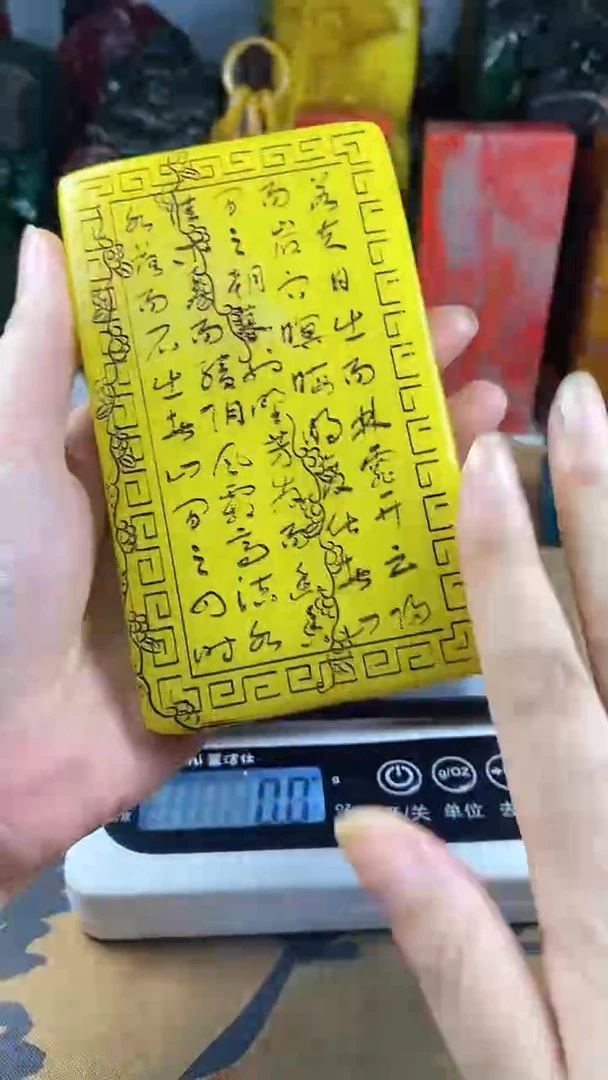 若夫日出而林霏开云归
而岩穴暝晦明变化者山
间之朝暮也野芳发而幽香
佳木秀而繁阴风霜高洁水
水落而石出者山间之四时
g
g/OZ
开/关 单位 去